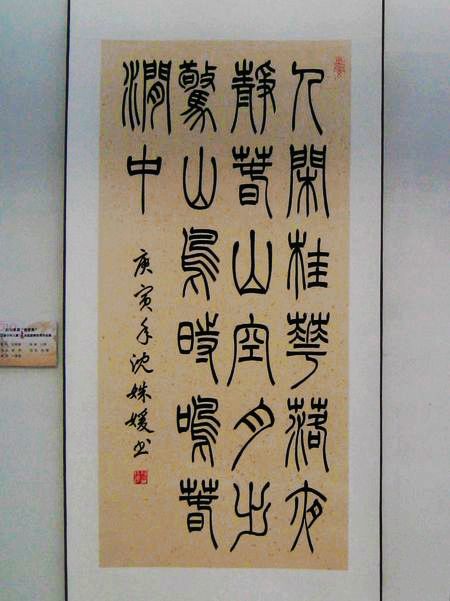 人閑桂華落夜
靜春山空月出
驚山鳥時鳴春
澗中
庚寅年沈姝媛书